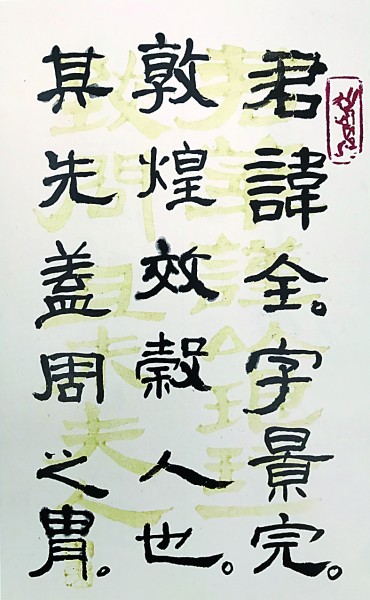 君諱全。字景完。
敦煌效穀人也。
其先蓋周之胄。